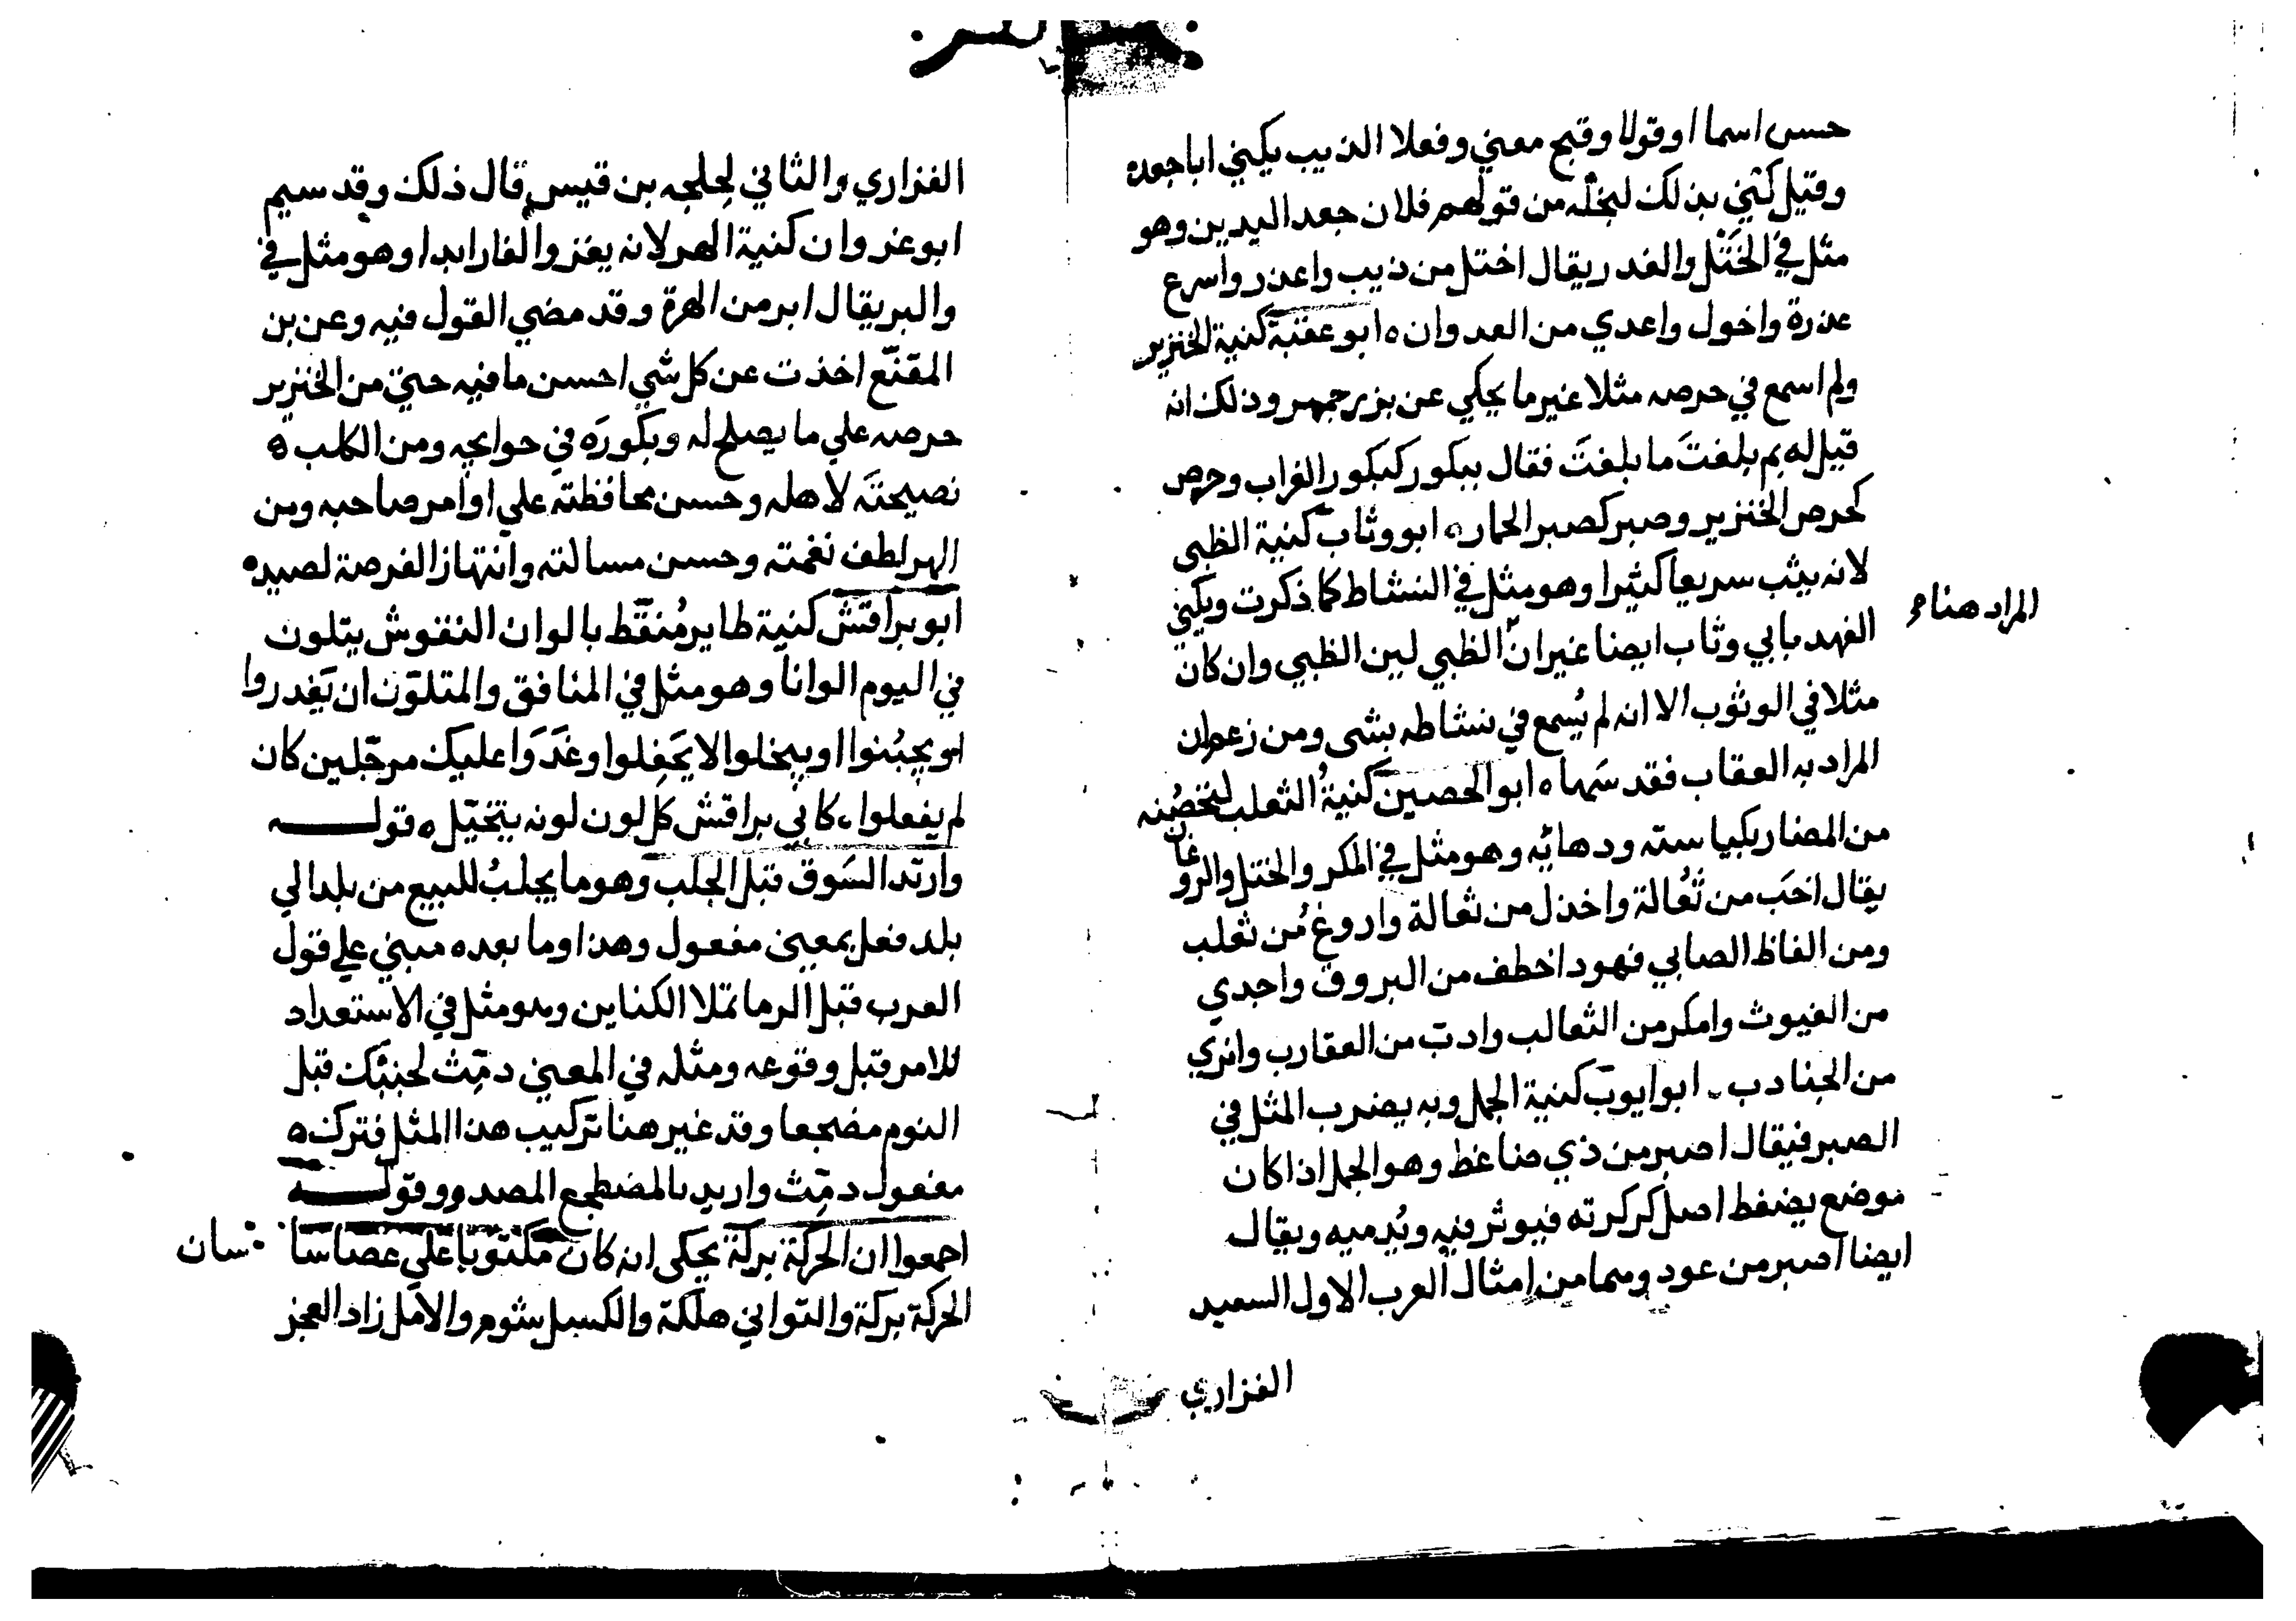 حسن اسما او قولا وقبح معني وفعلا الذيب يكني ابا جعده
وقيل كني بذلك لبخله من قولهم فلان جعد اليدين وهو
مثل في الختل والغدر يقال اختل من ذيب واغدر واسرع
غدرة واخول واعدي من العدوان ه ابو عقبة كنية الخنزير
ولم اسمع في حرصه مثلا غير ما يحكي عن بزرجمهر وذلك انه
قيل له بم بلغت ما بلغت فقال ببكور كبكور الغراب وحرص
كحرص الخنزير وصبر كصبر الحمار ه ابو وثاب كنية الظبي
لانه يثب سريعا كثيرا وهو مثل في النشاط كما ذكرت ويكني
الفهد بابي وثاب ايضا غير انّ الظبي لين الظبي وان كان
المراد هنا
مثلا في الوثوب الا انه لم يُسمع في نشاطه بشي ومن زعم ان
المراد به العقاب فقد سَها ه ابو الحصين كنيةُ الثعلب لتحصُنه
من المضار بكياسته ودهائه وهو مثل في المكر والختل والروغان
يقال اخَب من ثُعالة واخذل من ثعالة واروغ من ثعلب
ومن الفاظ الصابي فهود اخطف من البروق واجدي
من الغيوث وامكر من الثعالب وادبّ من العقارب وانزي
من الجنادب ـ ابو ايوب كنية الجمل وبه يضرب المثل في
الصبر فيقال اصبر من ذي ضاغط وهو الجمل اذا كان
موضع يضغط اصل كركرته فيوثر فيه ويُدميه ويقال
ايضا اصبر من عود وهما من امثال العرب الاول السعيد
الفزاري
الفزاري والثاني لحلحه بن قيس قال ذلك وقد سيم
ابو غزوان كنية الهر لانه يغزوا الفار ابدا وهو مثل في
والبر يقال ابر من الهرة وقد مضي القول فيه وعن بن
المقنّع اخذت عن كل شي احسن ما فيه حتي من الخنزير
حرصه علي ما يصلح له وبكورَه في حوايجه ومن الكلب ه
نصيحتَه لاهله وحسن محافظته علي اوامر صاحبه ومن
الهر لطف نغمته وحسن مسالته وانتهاز الفرصة لصيده
ابو براقش كنية طاير مُنقّط بالوان النقوش يتلون
في اليوم الوانا وهو مثل في المنافق والمتلوّن ان يَغدروا
او يجبُنوا او يبخلوا لا يَحفِلوا وغَدَوا عليك مرجّلين كان
لم يفعلوا، كابي براقش كل لون لونه يتخيّل ه قولـــه
وارتد السَوق قبل الجلب وهو ما يجلبُ للبيع من بلد الي
بلد فعل بمعني مفعول وهذا وما بعده مبني علي قول
العرب قبل الرما تملا الكناين وهو مثل في الاستعداد
للامر قبل وقوعه ومثله في المعني دمّث لجنبّك قبل
النوم مضجعا وقد غير هنا تركيب هذا المثل فترك ه
مفعول دمّث واريد بالمضطجع المصدر وقولـــه
اجمعوا ان الحركة بركة يحكي انه كان مكتوبا علي عصا سا سان
الحركة بركة والتواني هلكة والكسل شوم والامل زاد العجز